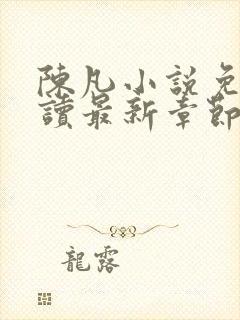 陳凡小說免
讀最新章節
龍露